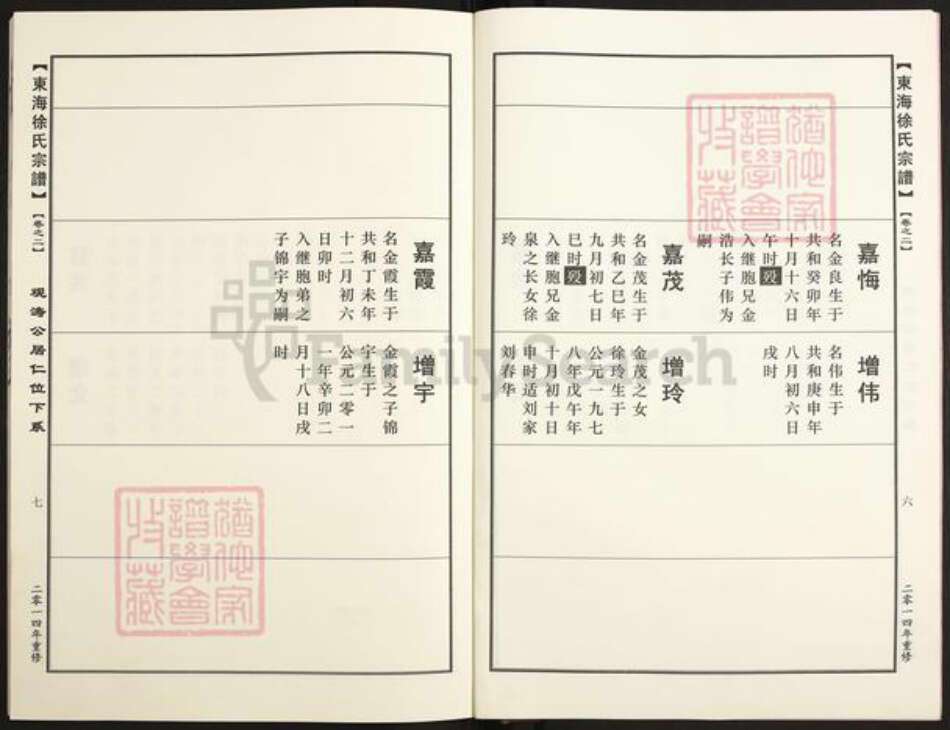 【東海徐氏宗譜】
【卷之二】
六
二零一四年重修
嘉悔
名金良生于
共和癸卯年
十月十六日
午时殁
入继胞兄金
浩长子伟为
嗣
增伟
名伟生于
共和庚申年
八月初六日
戌时
嘉茂
名金茂生于
共和乙巳年
九月初七日
巳时殁
入继胞兄金
泉之长女徐
玲
增玲
金茂之女
徐玲生于
公元一九七
八年戊午年
十月初十日
申时适刘家
刘春华
【東海徐氏宗譜】
【卷之二】
观涛公居仁位下系
七
二零一四年重修
嘉霞
名金霞生于
共和丁未年
十二月初六
日卯时
入继胞弟之
子锦宇为嗣
增宇
金霞之子锦
宇生于
公元二零一
一年辛卯二
月十八日戌
时
譜學會
收藏
譜學會
收藏
FamilySearch